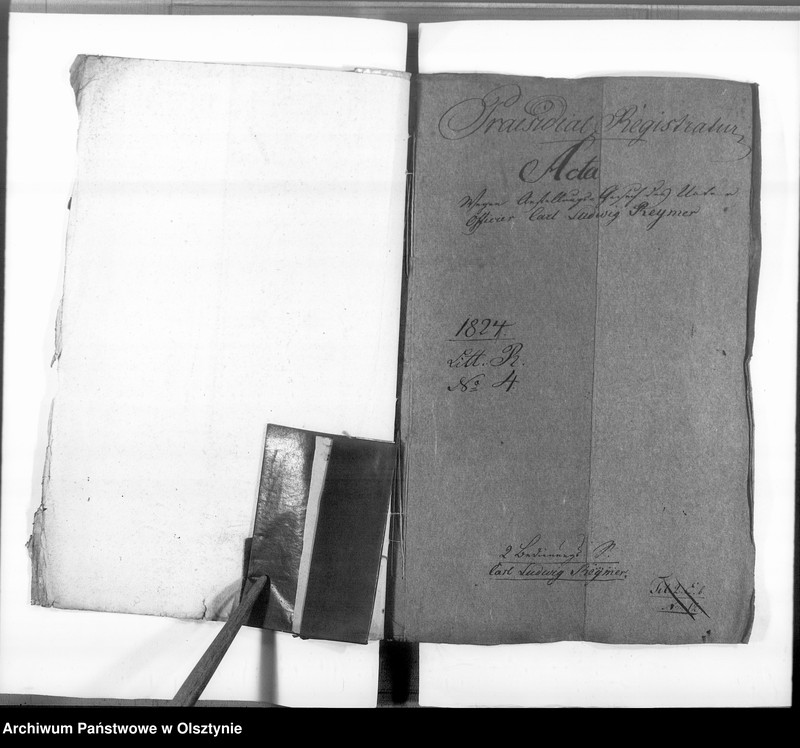 Praesidial Registratur
Acta
Wegen Anstellungs Gesuch des Unter
Officier Carl Ludwig Reymer
1824.
Litt. R.
No 4
2
Carl Ludwig Reymer.
Archiwum Państwowe w Olsztynie